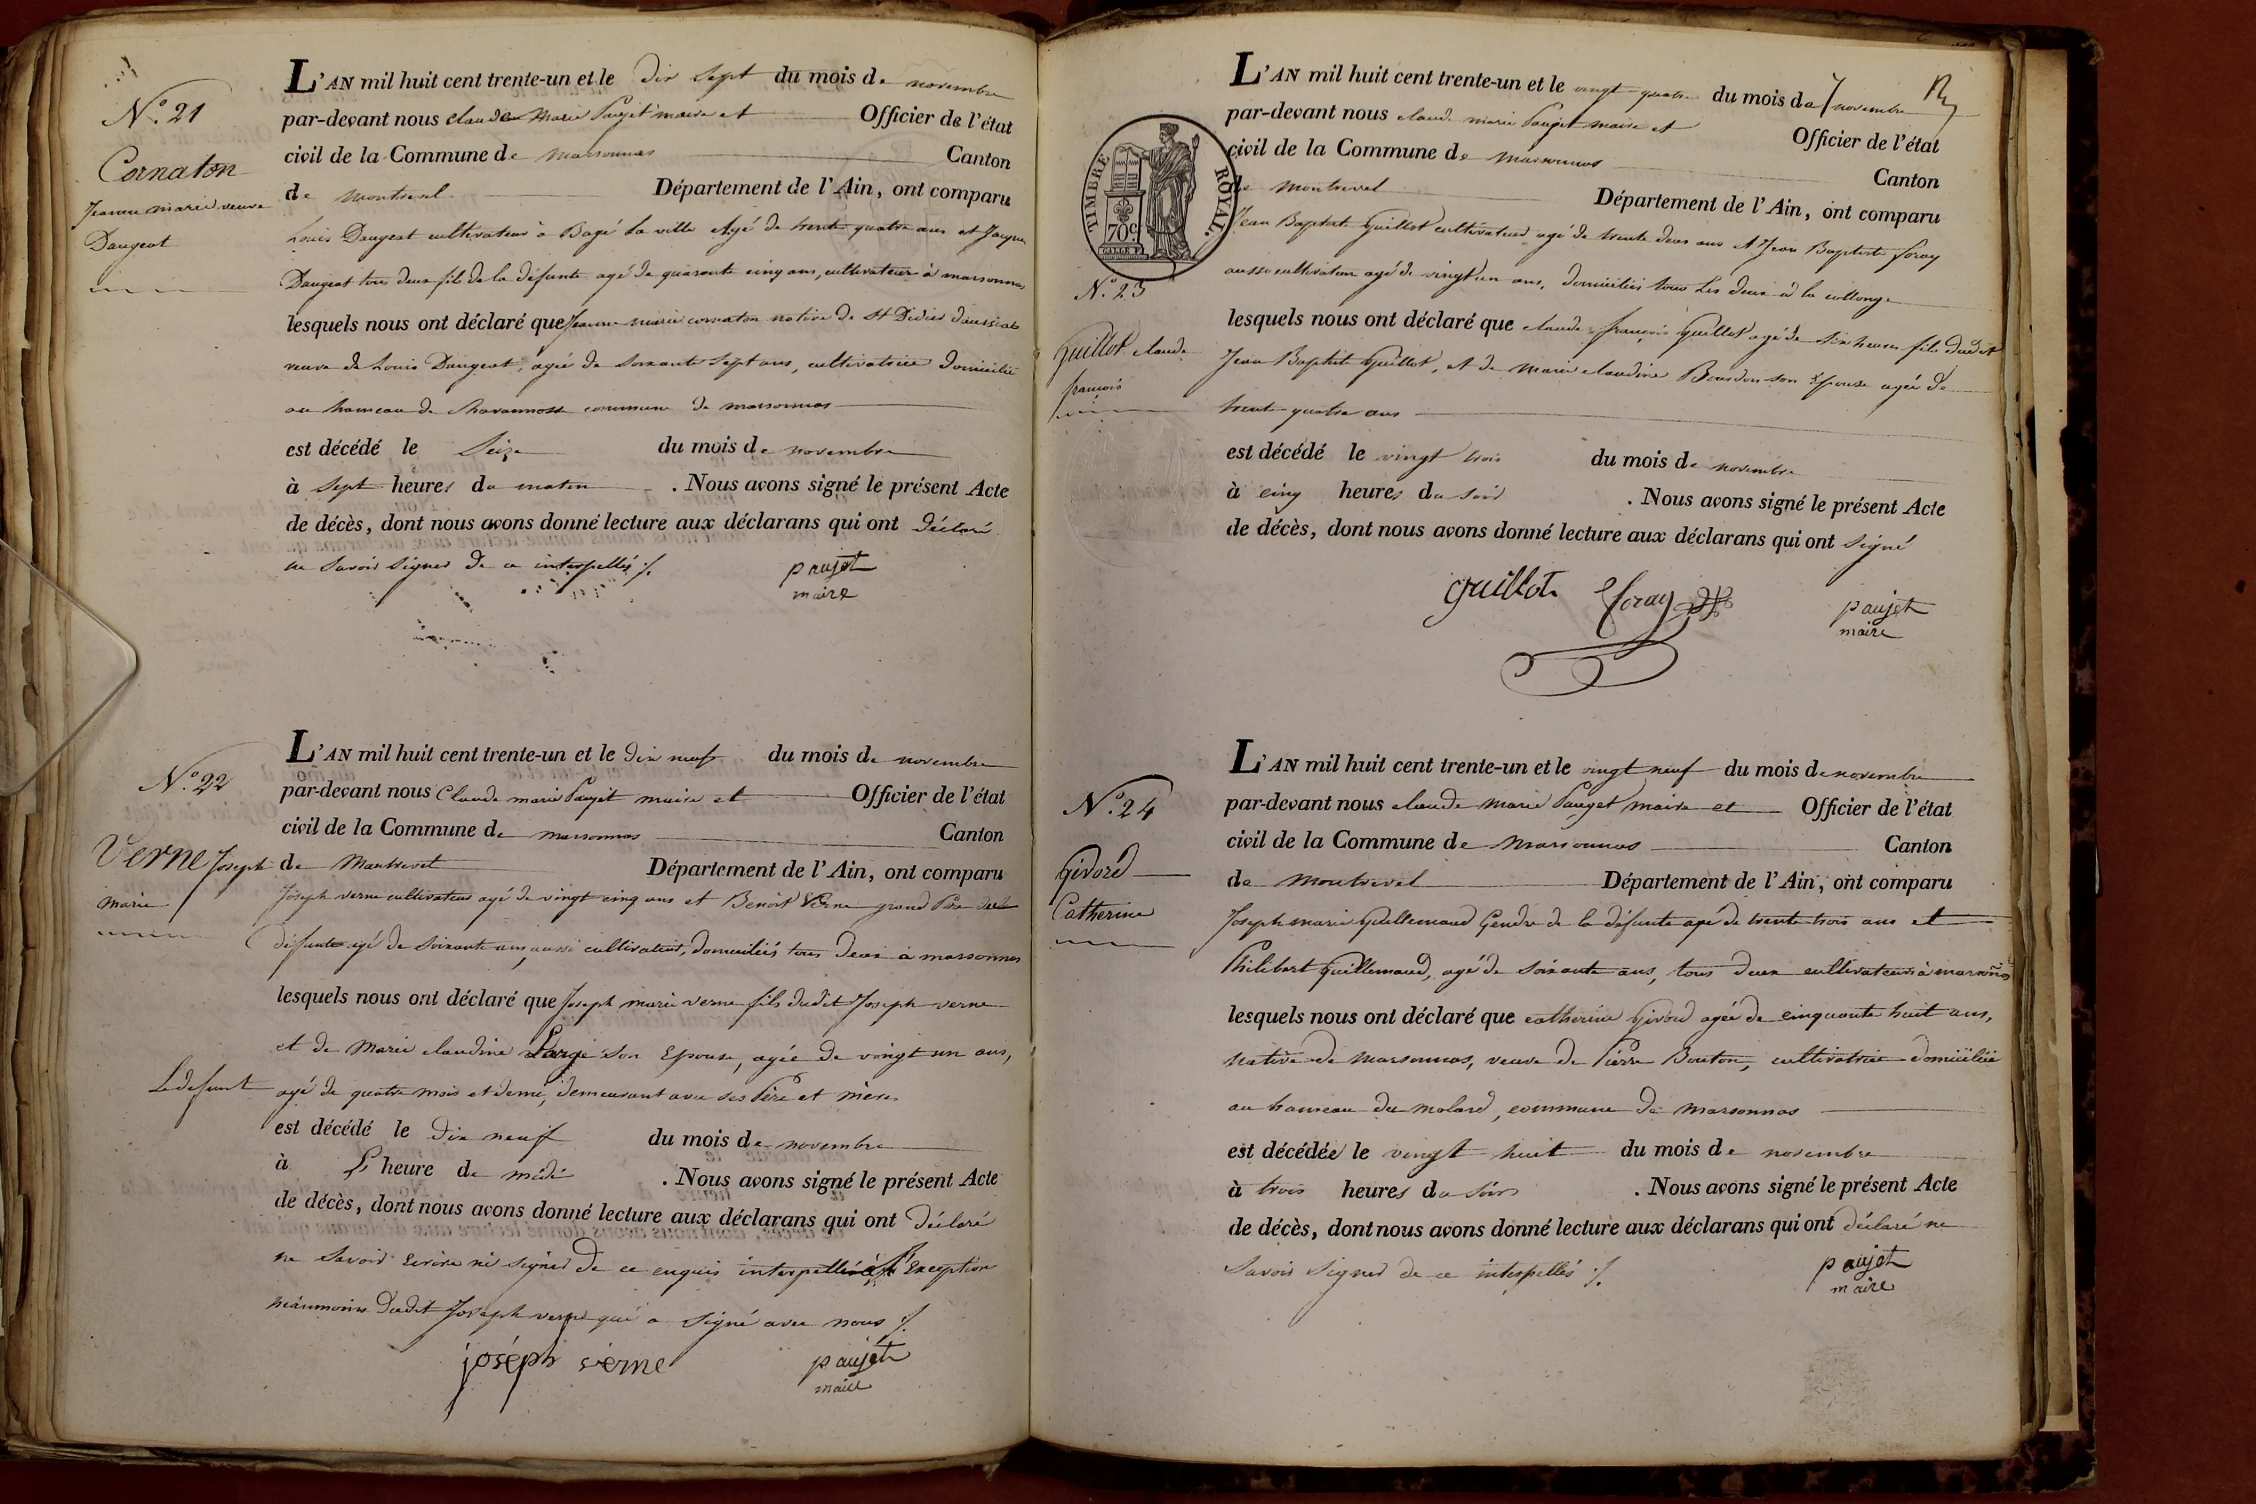 N.° 21
Cornaton
Jeanne marie veuve
Daugeat
L'AN mil huit cent trente-un et le dix sept du mois de novembre
par-devant nous claude Marie Paujet maire et Officier de l'état
civil de la Commune de marsonnas Canton
de montrevel Département de l'Ain, ont comparu
Louis Daugeat cultivateur à Bagé la ville agé de trente quatre ans et Jacques
Daugeat tous deux fils de la défunte agé de quarante cinq ans, cultivateur à marsonnas
lesquels nous ont déclaré que Jeanne marie cornaton native de St Didier d'aussiat
veuve de Louis Daugeat, agée de soixante sept ans, cultivatrice domiciliée
au hameau de commune de marsonnas
est décédé le Seize du mois de novembre
à sept heures du matin . Nous avons signé le présent Acte
de décès, dont nous avons donné lecture aux déclarans qui ont déclaré
ne savoir signer de ce interpellés ./.
paujet
maire
N.° 22
Verne Joseph
marie
L'AN mil huit cent trente-un et le dix neuf du mois de novembre
par-devant nous Claude marie Paujet maire et Officier de l'état
civil de la Commune de marsonnas Canton
de Montrevel Département de l'Ain, ont comparu
Joseph verne cultivateur agé de vingt cinq ans et Benoit Verne grand Père dudit
défunt agé de soixante ans, aussi cultivateur, domiciliés tous deux à marsonnas
lesquels nous ont déclaré que Joseph marie verne fils dudit Joseph verne
et de Marie claudine Large son Epouse, agée de vingt un ans,
Le defunt agé de quatre mois et demi, demeurant avec ses Père et mère
est décédé le dix neuf du mois de novembre
à L' heure de midi . Nous avons signé le présent Acte
de décès, dont nous avons donné lecture aux déclarans qui ont déclaré
ne savoir ecrire ni signer de ce enquis interpellés à l'Exception
néanmoins dudit Joseph verne qui a signé avec nous ./.
joséph verne
paujet
maire
L'AN mil huit cent trente-un et le vingt quatre du mois de novembre
par-devant nous claude marie Paujet maire et Officier de l'état
civil de la Commune de marsonnas Canton
de montrevel Département de l'Ain, ont comparu
TIMBRE ROYAL.
70c
N.° 23
Guillot claude
françois
Jean Baptiste Guillot cultivateur agé de trente deux ans et Jean Baptiste foray
aussi cultivateur agé de vingt un ans, domiciliés tous Les deux à la collonge
lesquels nous ont déclaré que claude françois Guillot agé de six heures fils dudit
Jean Baptiste Guillot, et de Marie claudine Bourdon son Epouse agée de
trente quatre ans
est décédé le vingt trois du mois de novembre
à cinq heures du soir . Nous avons signé le présent Acte
de décès, dont nous avons donné lecture aux déclarans qui ont signé
Guillot
foray
paujet
maire
N.° 24
Givord
Catherine
L'AN mil huit cent trente-un et le vingt neuf du mois de novembre
par-devant nous claude Marie Paujet maire et Officier de l'état
civil de la Commune de Marsonnas Canton
de Montrevel Département de l'Ain, ont comparu
Joseph marie Guillemaud Gendre de la défunte agé de trente trois ans et
Philibert Guillemaud, agé de soixante ans, tous deux cultivateurs à marsonnas
lesquels nous ont déclaré que catherine Givord agée de cinquante huit ans,
native de Marsonnas, veuve de Pierre Bouton, cultivatrice domiciliée
au hameau du molard, commune de Marsonnas
est décédée le vingt huit du mois de novembre
à trois heures du soir . Nous avons signé le présent Acte
de décès, dont nous avons donné lecture aux déclarans qui ont déclaré ne
savoir signer de ce interpellés ./.
paujet
maire